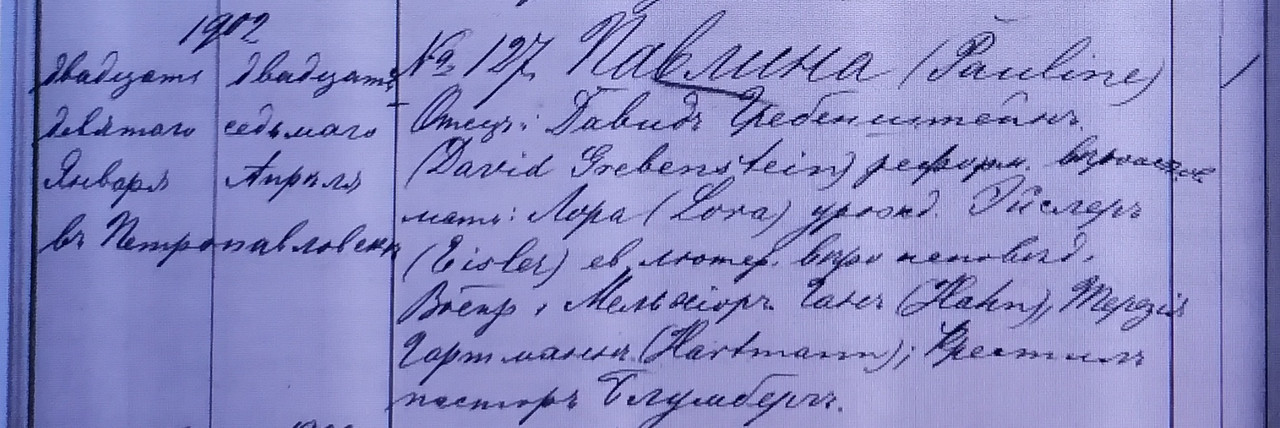 1902
двадцать
девятаго
Января
въ Петропавловскѣ
двадцать
седьмаго
Апрѣля
№ 127. Павлина (Pauline)
Отецъ: Давидъ Гребенштейнъ
(David Grebenstein) реформ.
мать: Лора (Lora) урожд. Эйслеръ
(Eisler) ев. лютер. вѣроисповѣд.
Воспр.: Мельхіоръ Ганъ (Hahn), Терезія
Гартманнъ (Hartmann); Крестилъ
пасторъ Блумбергъ.
1